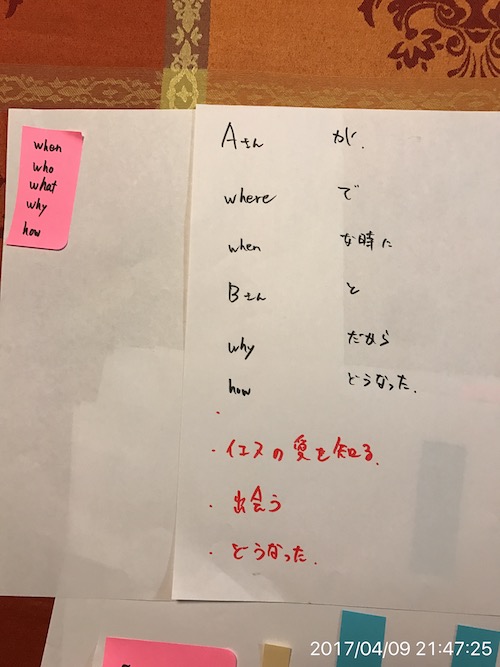 when
who
what
why
how
Aさん が、
where で
when な時に
Bさん と
why だから
how どうなった.
・
・イエスの愛を知る.
・出会う
・どうなった.
2017/04/09 21:47:25